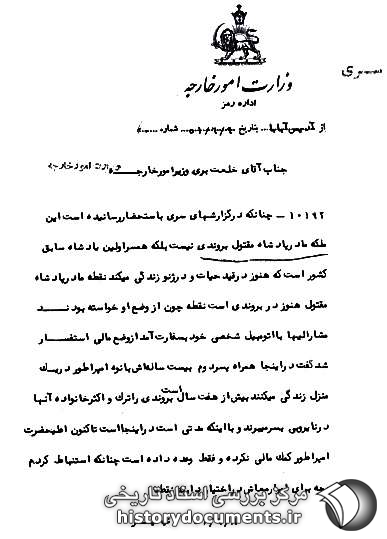 سری
وزارت امور خارجه
اداره رمز
از آدیس آبابا... بتاریخ شماره
جناب آقای خلعت بری وزیر امور خارجه
وزارت امور خارجه
۱۰۱۹۲ - چنانکه در گزارشهای سری باستحضار رسانیده است این
ملکه مادر پادشاه مقتول بروندی نیست بلکه همسر اولین پادشاه سابق
کشور است که هنوز در قید حیات و در ژنو زندگی میکند نقطه مادر پادشاه
مقتول هنوز در بروندی است نقطه چون از وضع او خواسته بودند
مشارالیها با اتومبیل شخصی خود بسفارت آمد از وضع مالی استفسار
شد گفت در اینجا همراه پسر دوم بیست ساله‌اش با نوه امپراطور در یک
منزل زندگی میکنند بیش از هفت سال است بروندی را ترک و اکثر خانواده آنها
در نایروبی بسر میبرند و با اینکه مدتی است در اینجا است تاکنون اعلیحضرت
امپراطور کمک مالی نکرده و فقط وعده داده است چنانکه استنباط کردم
مرکز بررسی اسناد تاریخی
historydocuments.ir